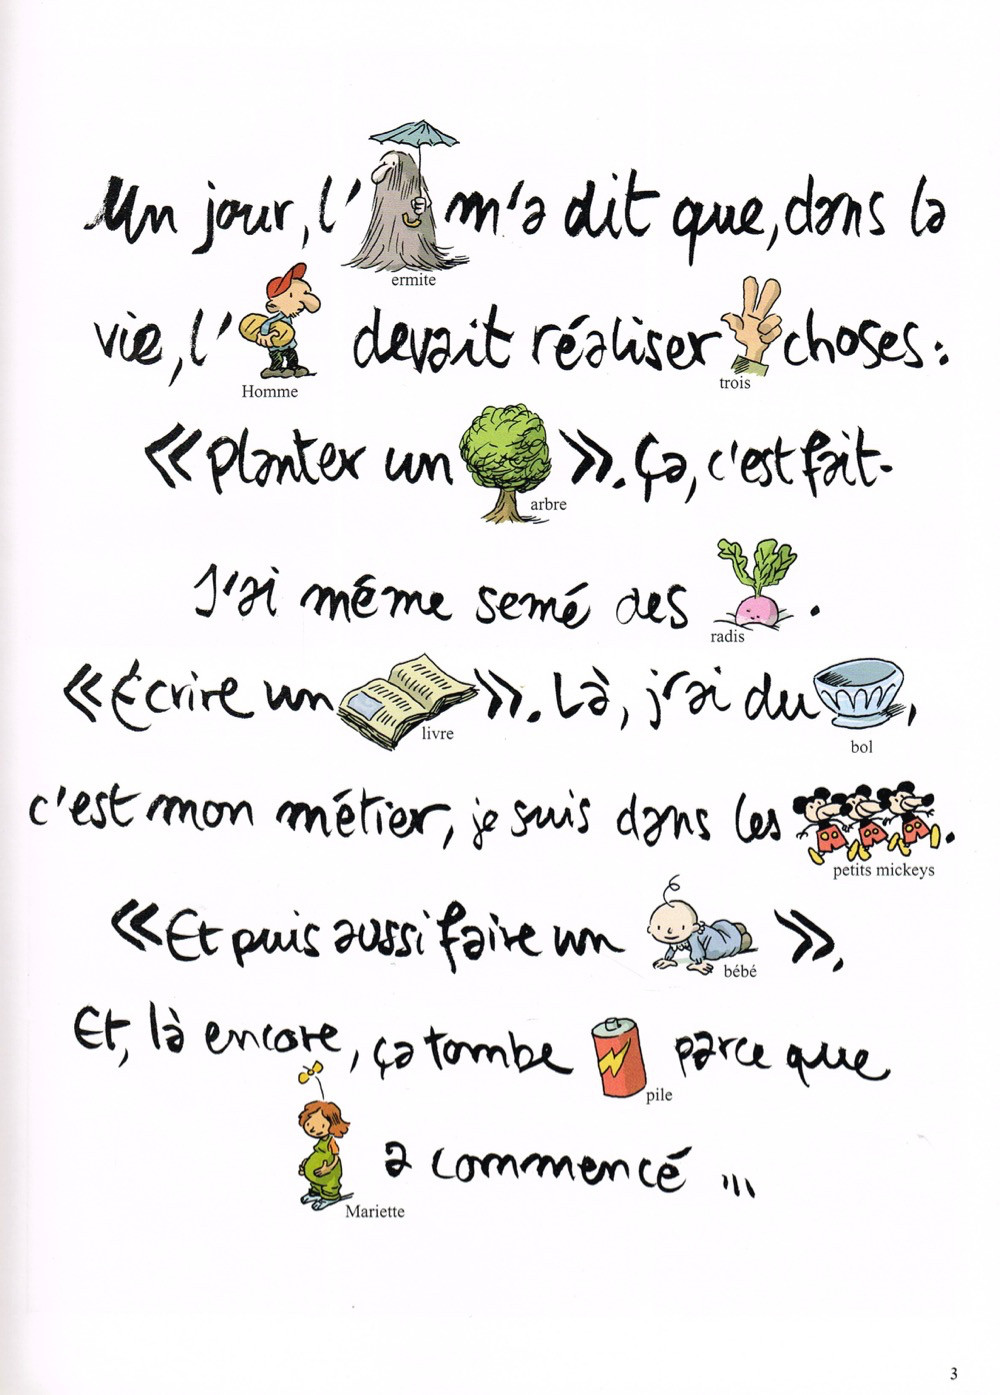 Un jour, l' m'a dit que, dans la
ermite
vie, l' devait réaliser choses :
Homme trois
« planter un ». Ça, c'est fait.
arbre
J'ai même semé des .
radis
« Écrire un ». Là, j'ai du ,
livre bol
c'est mon métier, je suis dans les .
petits mickeys
« Et puis aussi faire un ».
bébé
Et, là encore, ça tombe parce que
pile
a commencé ...
Mariette
3